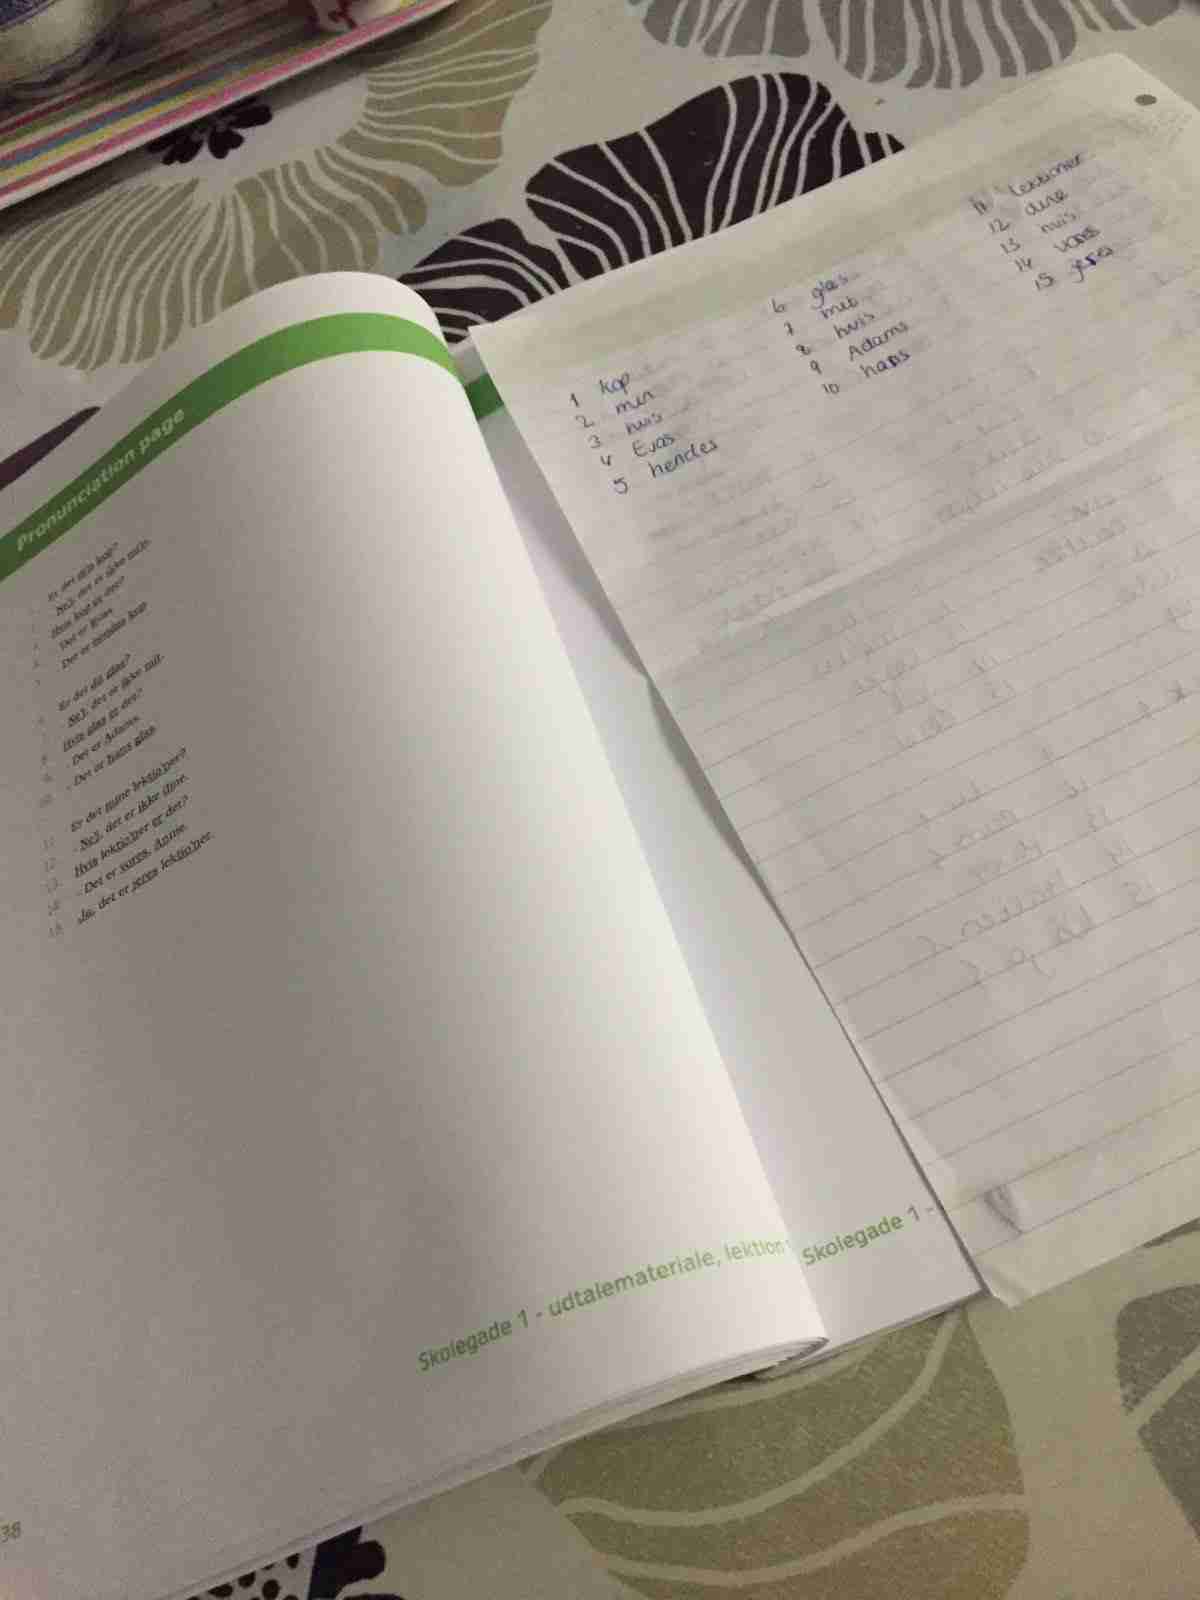 Pronunciation page
1. Er det din kop?
2. - Nej, det er ikke min.
3. Hvis kop er det?
4. - Det er Evas.
5. Det er hendes kop.
6. Er det dit glas?
7. - Nej, det er ikke mit.
8. Hvis glas er det?
9. - Det er Adams.
10. - Det er hans glas.
11. Er det mine lektio'ner?
12. - Nej, det er ikke dine.
13. Hvis lektio'ner er det?
14. - Det er vores, Anine.
15. Ja, det er jeres lektio'ner.
Skolegade 1 - udtalemateriale, lektion
38
1 kop
2 min
3 hvis
4 Evas
5 hendes
6 glas
7 mit
8 hvis
9 Adams
10 hans
11 lektioner
12 dine
13 hvis
14 vores
15 jeres
Skolegade 1 -